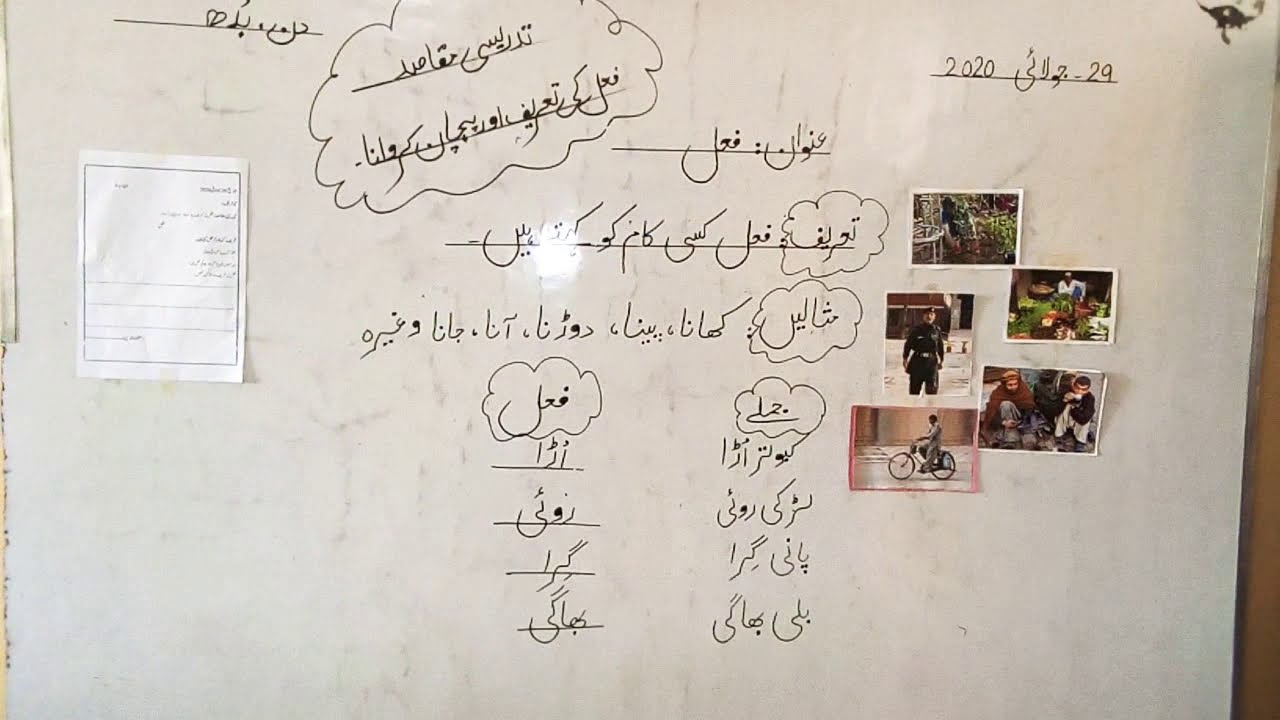 29 - جولائی 2020
دن، بُدھ
تدریسی مقاصد
فعل کی تعریف اور پہچان کروانا۔
عنوان: فعل
تعریف: فعل کسی کام کو کہتے ہیں۔
مثالیں: کھانا، پینا، دوڑنا، آنا، جانا وغیرہ
جملے فعل
کبوتر اُڑا اُڑا
لڑکی روئی روئی
پانی گِرا گِرا
بلی بھاگی بھاگی